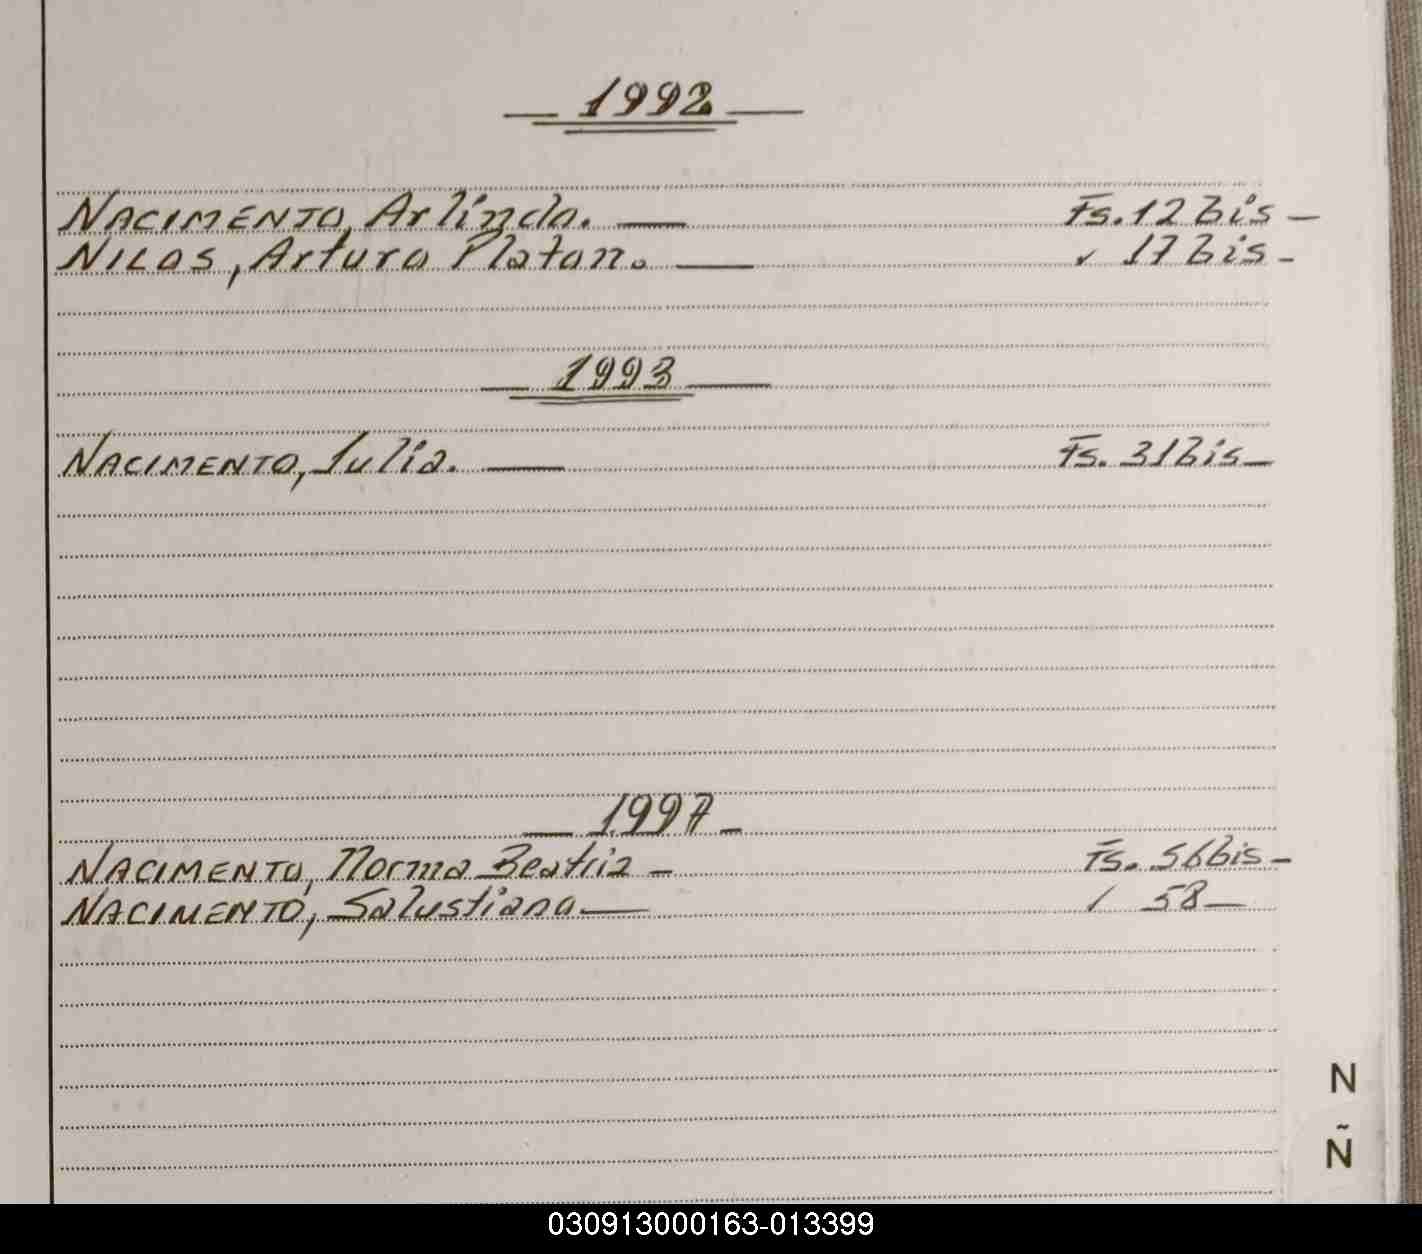 1992
NACIMENTO, Arlindo. Fs. 12 bis -
NILOS, Arturo Platon. " 17 bis -
1993
NACIMENTO, Julia. Fs. 31 bis -
1997
NACIMENTO, Norma Beatriz - Fs. 56 bis -
NACIMENTO, Salustiana - " 58 -
N
Ñ
030913000163-013399